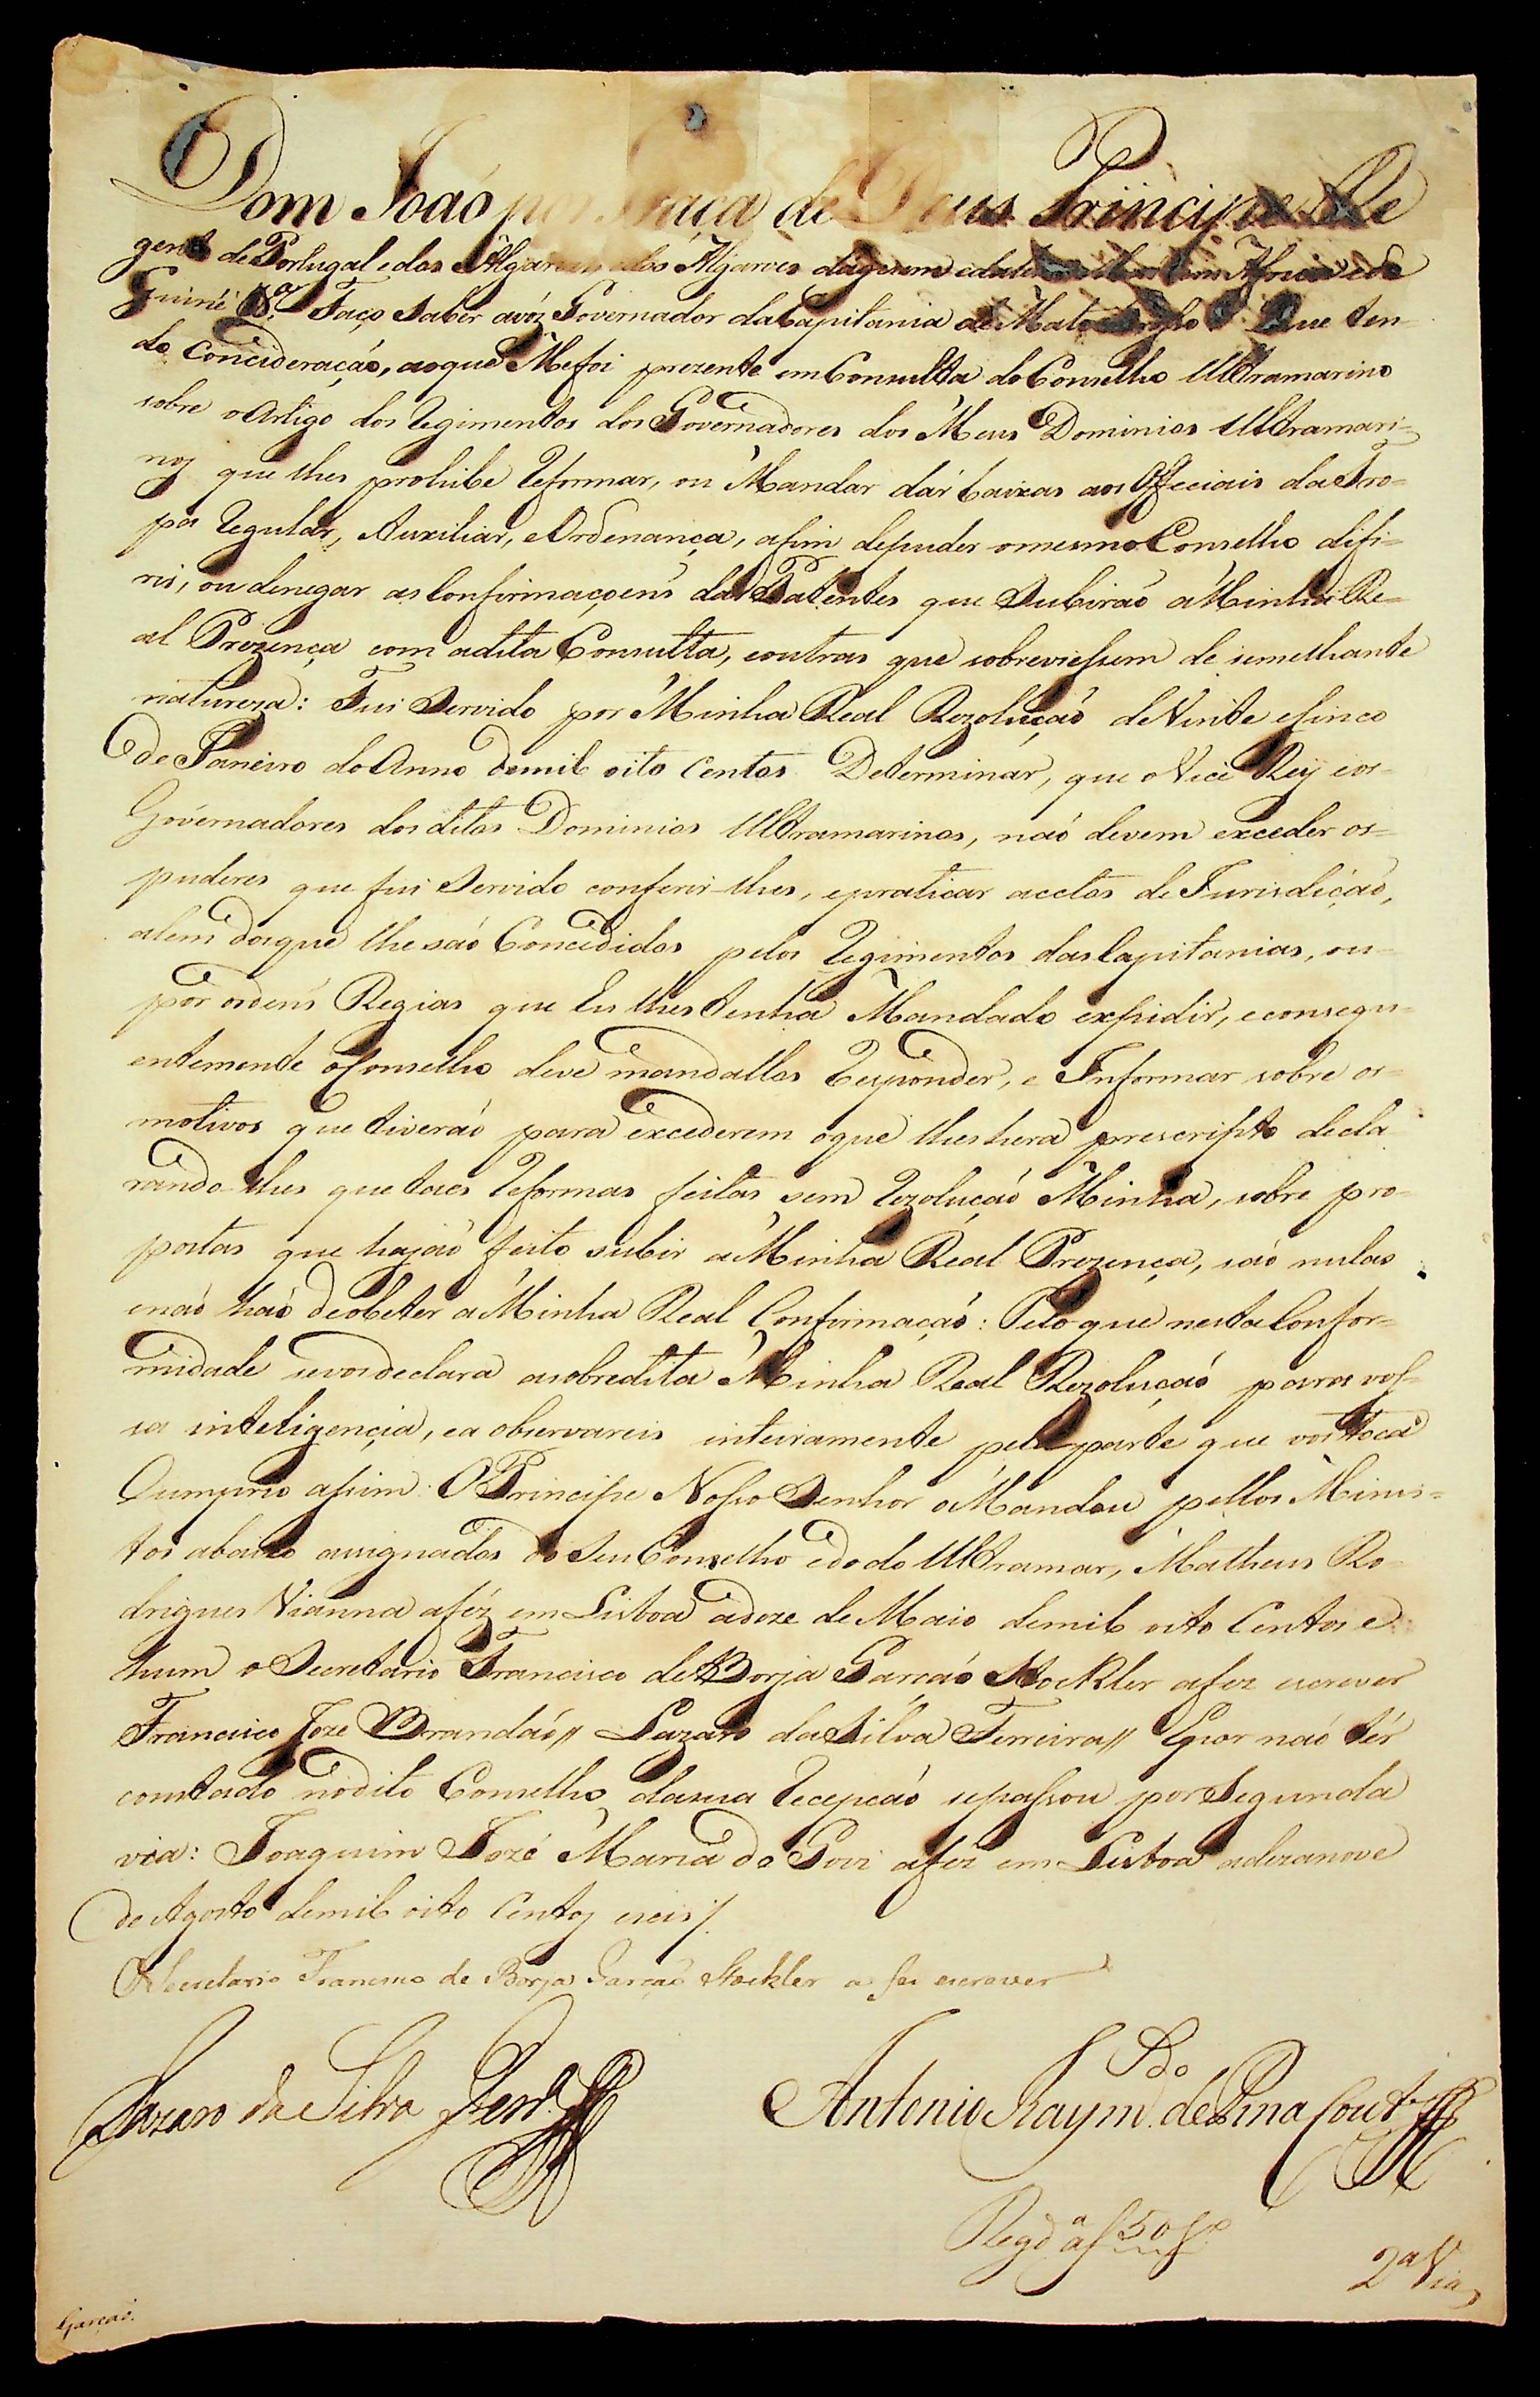 Dom João por Graça de Deus Principe Re
gente de Portugal e dos Algarves, dos Algarves daquem e dalem Mar em Africa e de
Guiné &.ª Faço Saber a vóz Governador da Capitania de Mato Groço Que ten-
do Concideração, ao que Me foi prezente em Consulta do Conselho Ultramarino
sobre o Artigo dos Regimentos dos Governadores dos Meus Dominios Ultramari-
noz que lhes prohibe Reformar, ou Mandar dár baixas aos Officiais da Tro-
pa Regular, Auxiliar, e Ordenança, afim de puder o mesmo Conselho difi-
rir, ou denegar as Confirmaçoens das Patentes que Subirão á Minha Re-
al Prezença com a dita Consulta, e outras que sobreviessem de semelhante
natureza: Fui Servido por Minha Real Rezolução de Vinte e sinco
de Janeiro do Anno de mil oito Centos Determinár, que o Vice Rey e os-
Governadores dos ditos Dominios Ultramarinos, não devem exceder os-
puderes que fui Servido conferir-lhes, e praticar acctos de Jurisdição,
alem dos que lhe são Concedidos pelos Regimentos das Capitanias, ou-
por ordens Regias que Eu lhes tenha Mandado expidir, e consequ-
entemente o Conselho deve mandallos Responder, e Informar sobre os-
motivos que tiverão para excederem o que lhes hera prescripto decla
rando-lhes que taes Reformas feitas sem Rezolução Minha, sobre pro-
postas que hajão feito subir a Minha Real Prezença, são nulas
e não hão de obeter a Minha Real Confirmação: Pelo que nesta Confor-
midade se vos declara a sobredita Minha Real Rezolução para vos-
sa inteligençia, e a observareis inteiramente pela parte que vos toca
Cumprio assim: O Principe Nosso Senhor o Mandou pellos Minis-
tos abaixo assignados do Seu Conselho e do do Ultramar, Matheus Ro-
drigues Vianna a féz em Lisboa a doze de Maio de mil oito Centos e
hum o Secretario Francisco de Borja Garcão Stockler a fez escrever
Francisco Joze Brandão // Lazaro da Silva Ferreira // E por não tér
constado no dito Conselho da sua Recepcão se passou por Segunda
via: Joaquim Jozé Maria do Govi a féz em Lisboa a dezanove
de Agosto de mil oito Centoz e seis /.
O Secretario Francisco de Borja Garção Stockler a fez escrever
Lazaro da Silva Ferr.ª Antonio Raym.do de Pina Cout.º
Regd.ª a f 50
2ª Via
Garcaõ.